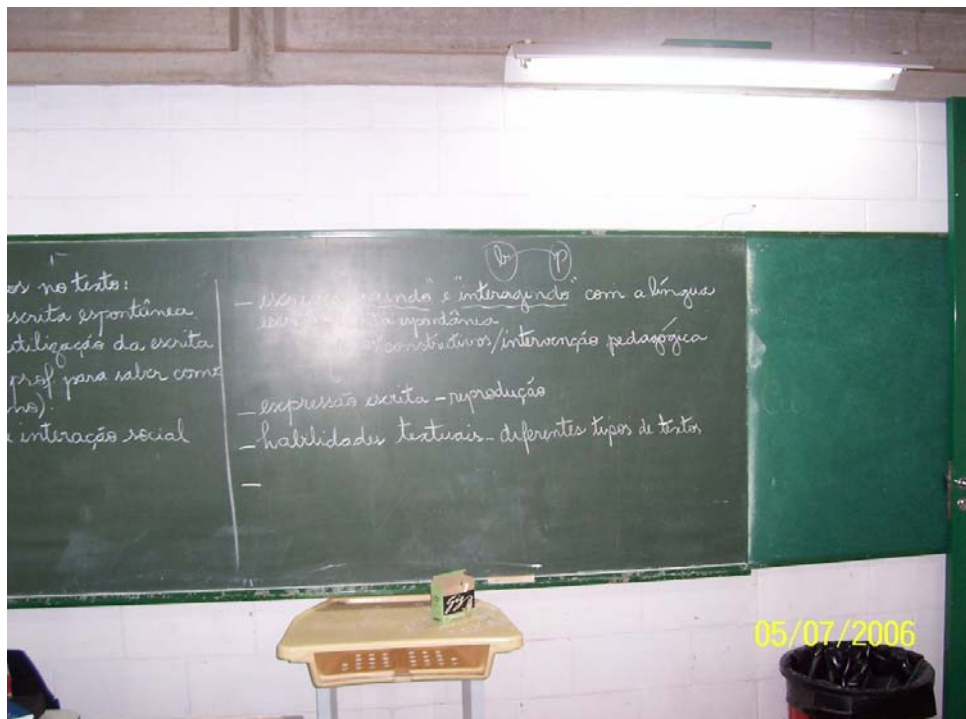 os no texto:
escrita espontânea
utilização da escrita
prof. para saber como
interação social
b p
— "interagindo" com a língua
espontânea
construtivos/intervenção pedagógica
— expressão escrita – reprodução
— habilidades textuais – diferentes tipos de textos
—
05/07/2006